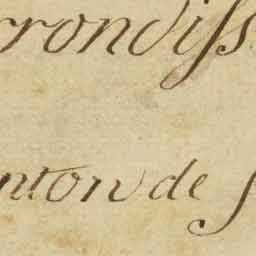 rrondiss
nton de